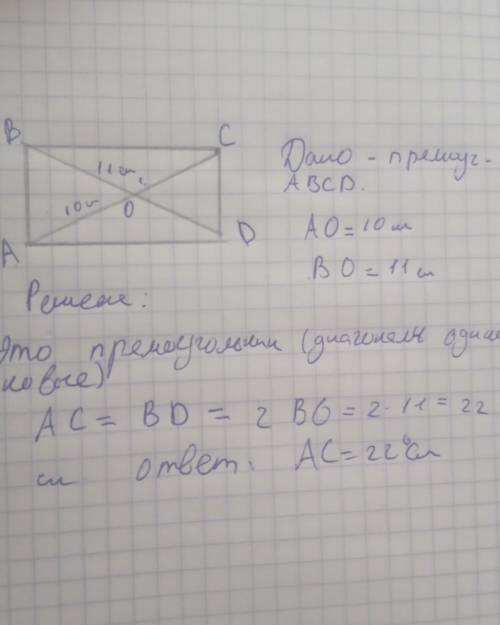 B
C
11 см
10 см
O
A
D
Дано - прямоуг-
ABCD.
AO = 10 см
BO = 11 см
Решение:
Это прямоугольник (диагонали одина
ковые)
AC = BD = 2 BO = 2 · 11 = 22
см ответ. AC = 22 см